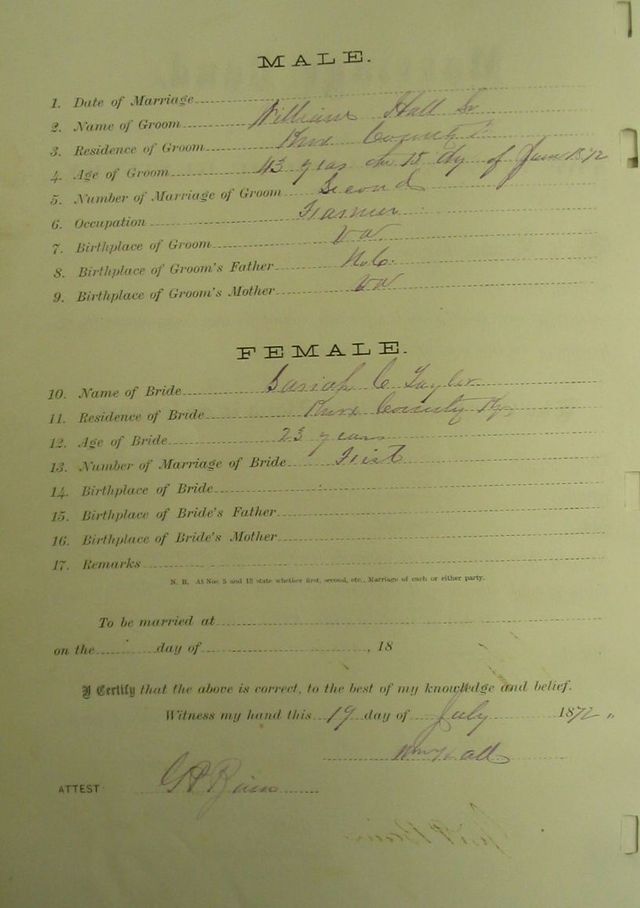 MALE.
1. Date of Marriage
2. Name of Groom William Hall Sr
3. Residence of Groom Knox County
4. Age of Groom 43 years on 15 dy of June 1872
5. Number of Marriage of Groom Second
6. Occupation Farmer
7. Birthplace of Groom Va
8. Birthplace of Groom's Father N.C.
9. Birthplace of Groom's Mother Va
FEMALE.
10. Name of Bride Sariah C Taylor
11. Residence of Bride Knox County Ky
12. Age of Bride 23 years
13. Number of Marriage of Bride First
14. Birthplace of Bride
15. Birthplace of Bride's Father
16. Birthplace of Bride's Mother
17. Remarks
N. B. At Nos. 5 and 13 state whether first, second, etc., Marriage of each or either party.
To be married at
on the day of , 18
I Certify that the above is correct, to the best of my knowledge and belief.
Witness my hand this 19 day of July 1872
Wm Hall
ATTEST